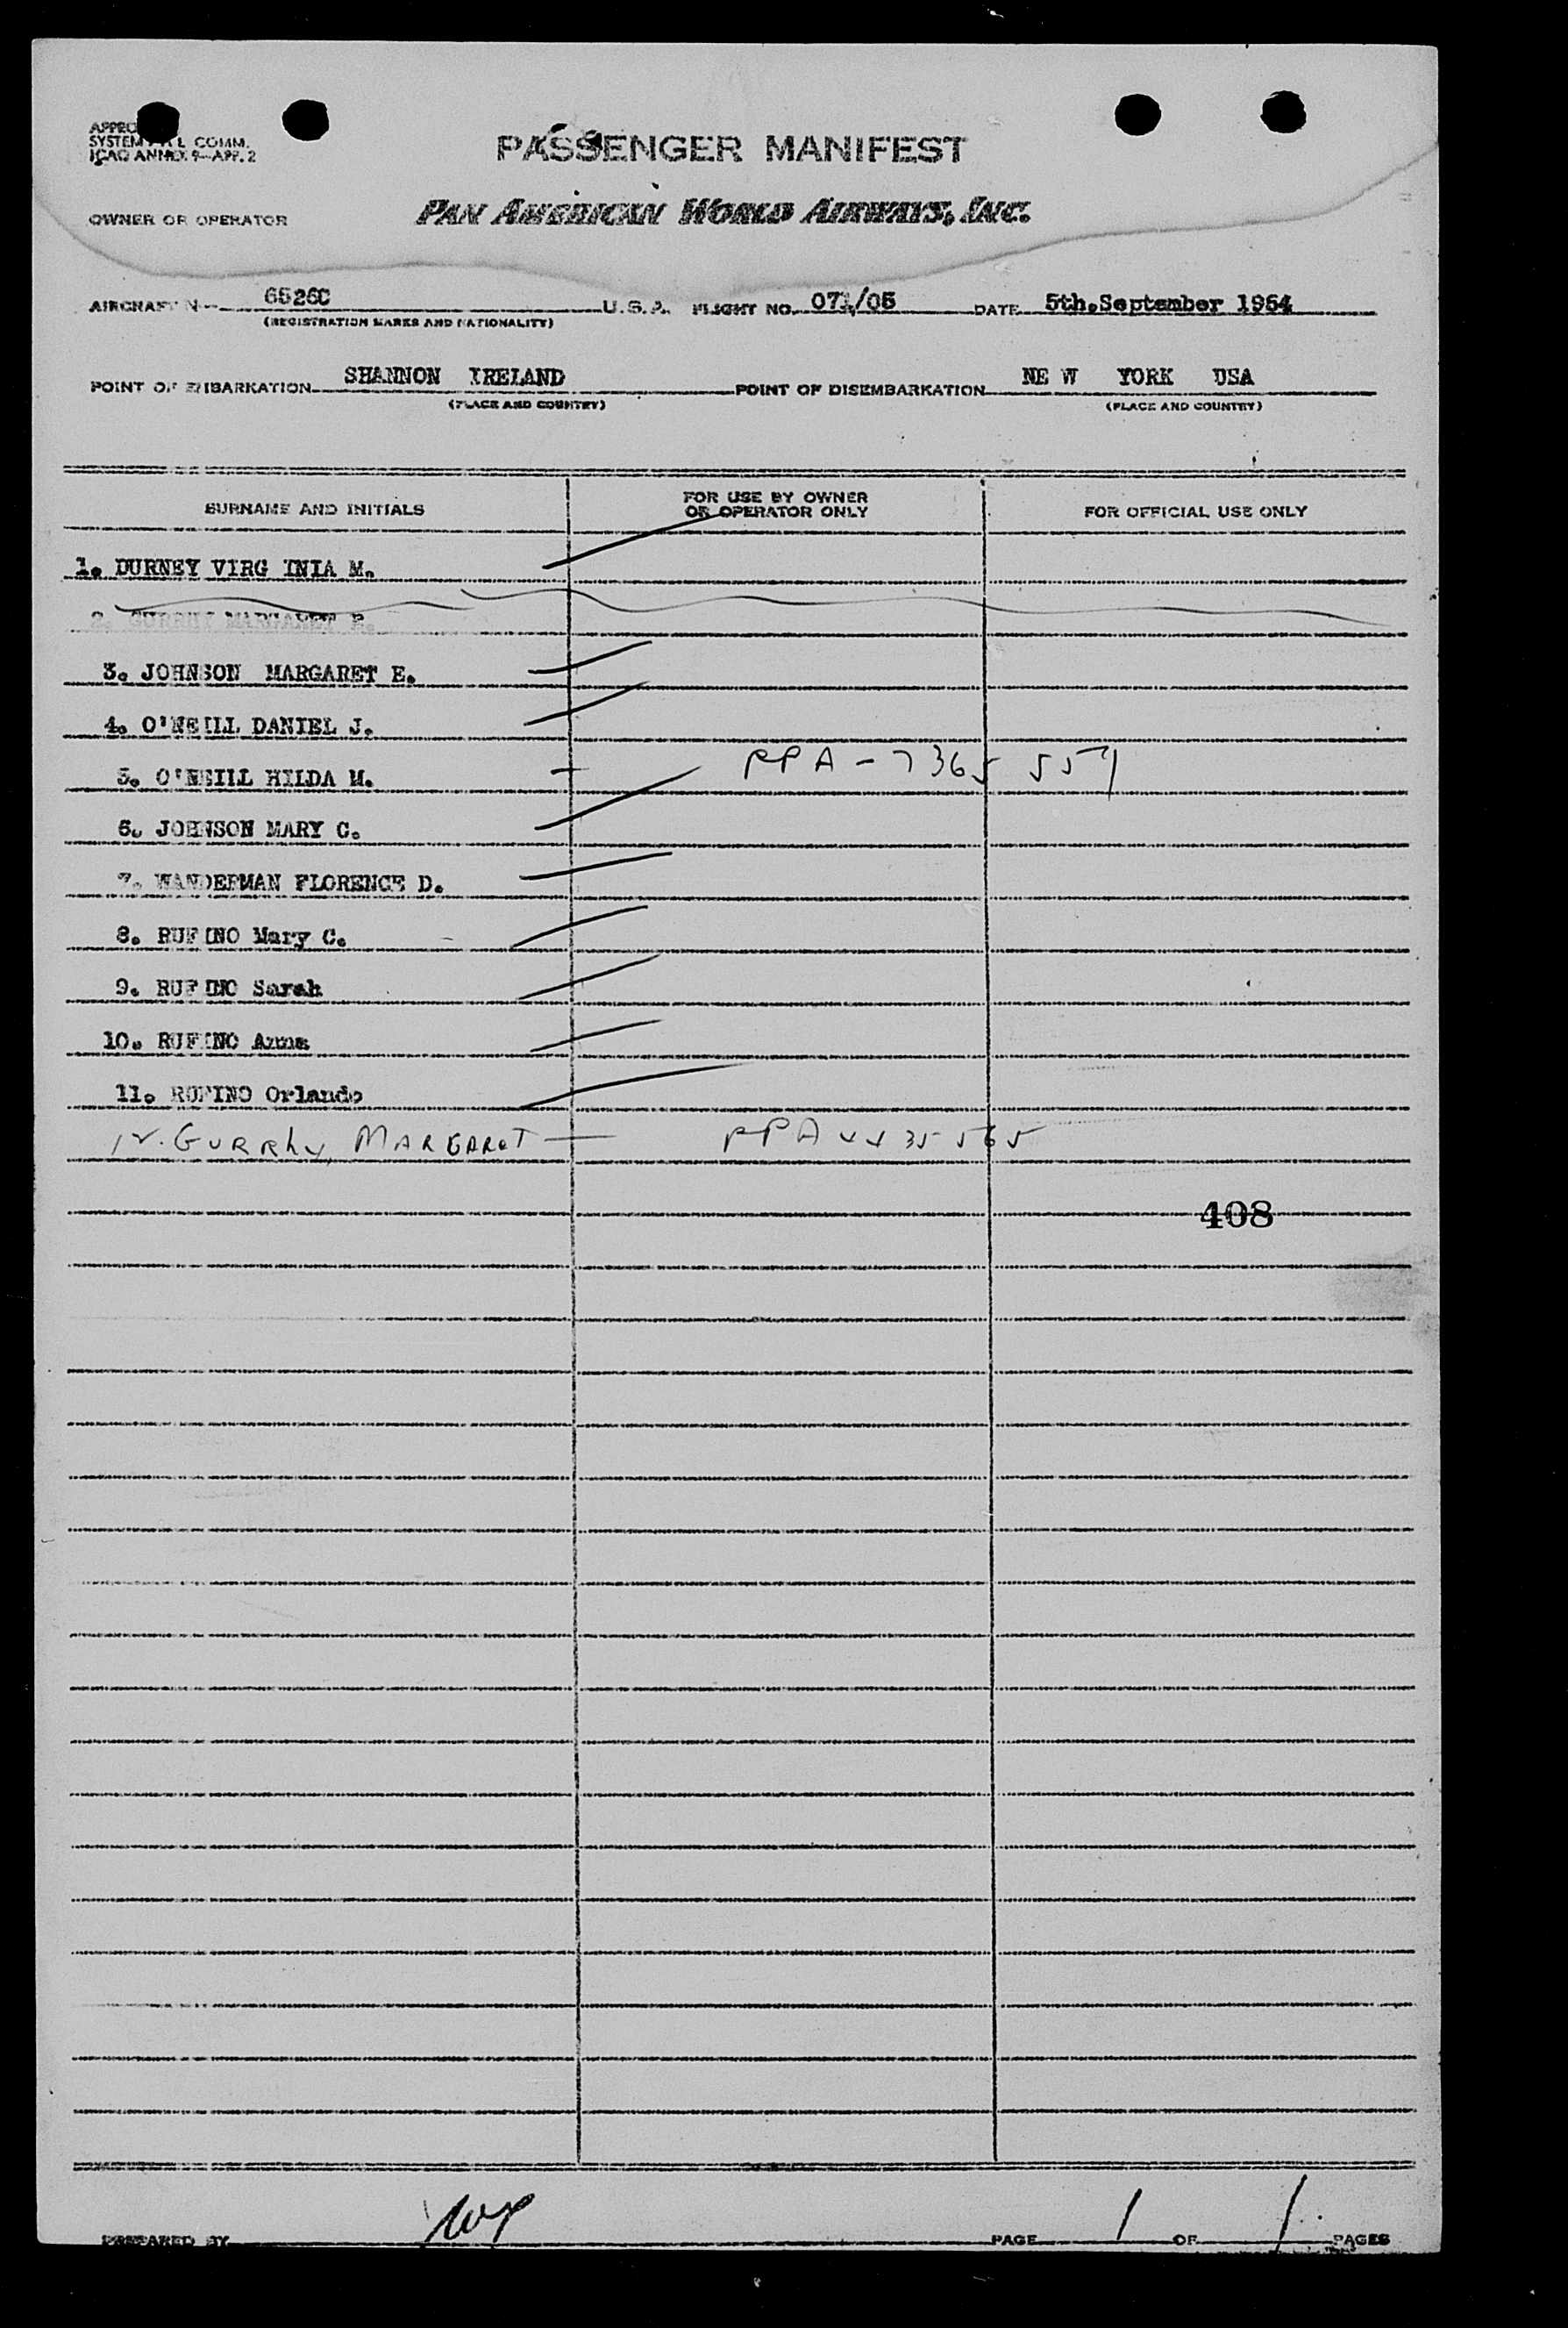 SYSTEM COMM.
ICAO ANNEX 9—APP. 2
PASSENGER MANIFEST
OWNER OR OPERATOR PAN AMERICAN WORLD AIRWAYS, INC.
AIRCRAFT N 6526C U.S.A. FLIGHT NO. 071/05 DATE 5th.September 1954
(REGISTRATION MARKS AND NATIONALITY)
POINT OF EMBARKATION SHANNON IRELAND POINT OF DISEMBARKATION NE W YORK USA
(PLACE AND COUNTRY) (PLACE AND COUNTRY)
SURNAME AND INITIALS FOR USE BY OWNER OR OPERATOR ONLY FOR OFFICIAL USE ONLY
1. DURNEY VIRG INIA M.
2. MARGARET E.
3. JOHNSON MARGARET E.
4. O'NEILL DANIEL J.
5. O'NEILL HILDA M. PPA - 7365 559
6. JOHNSON MARY C.
7. WANDERMAN FLORENCE D.
8. RUFINO Mary C.
9. RUFINO Sarah
10. RUFINO Anna
11. RUFINO Orlando
12. GURRHY, MARGARET PPA
408
PREPARED BY PAGE 1 OF 1 PAGES